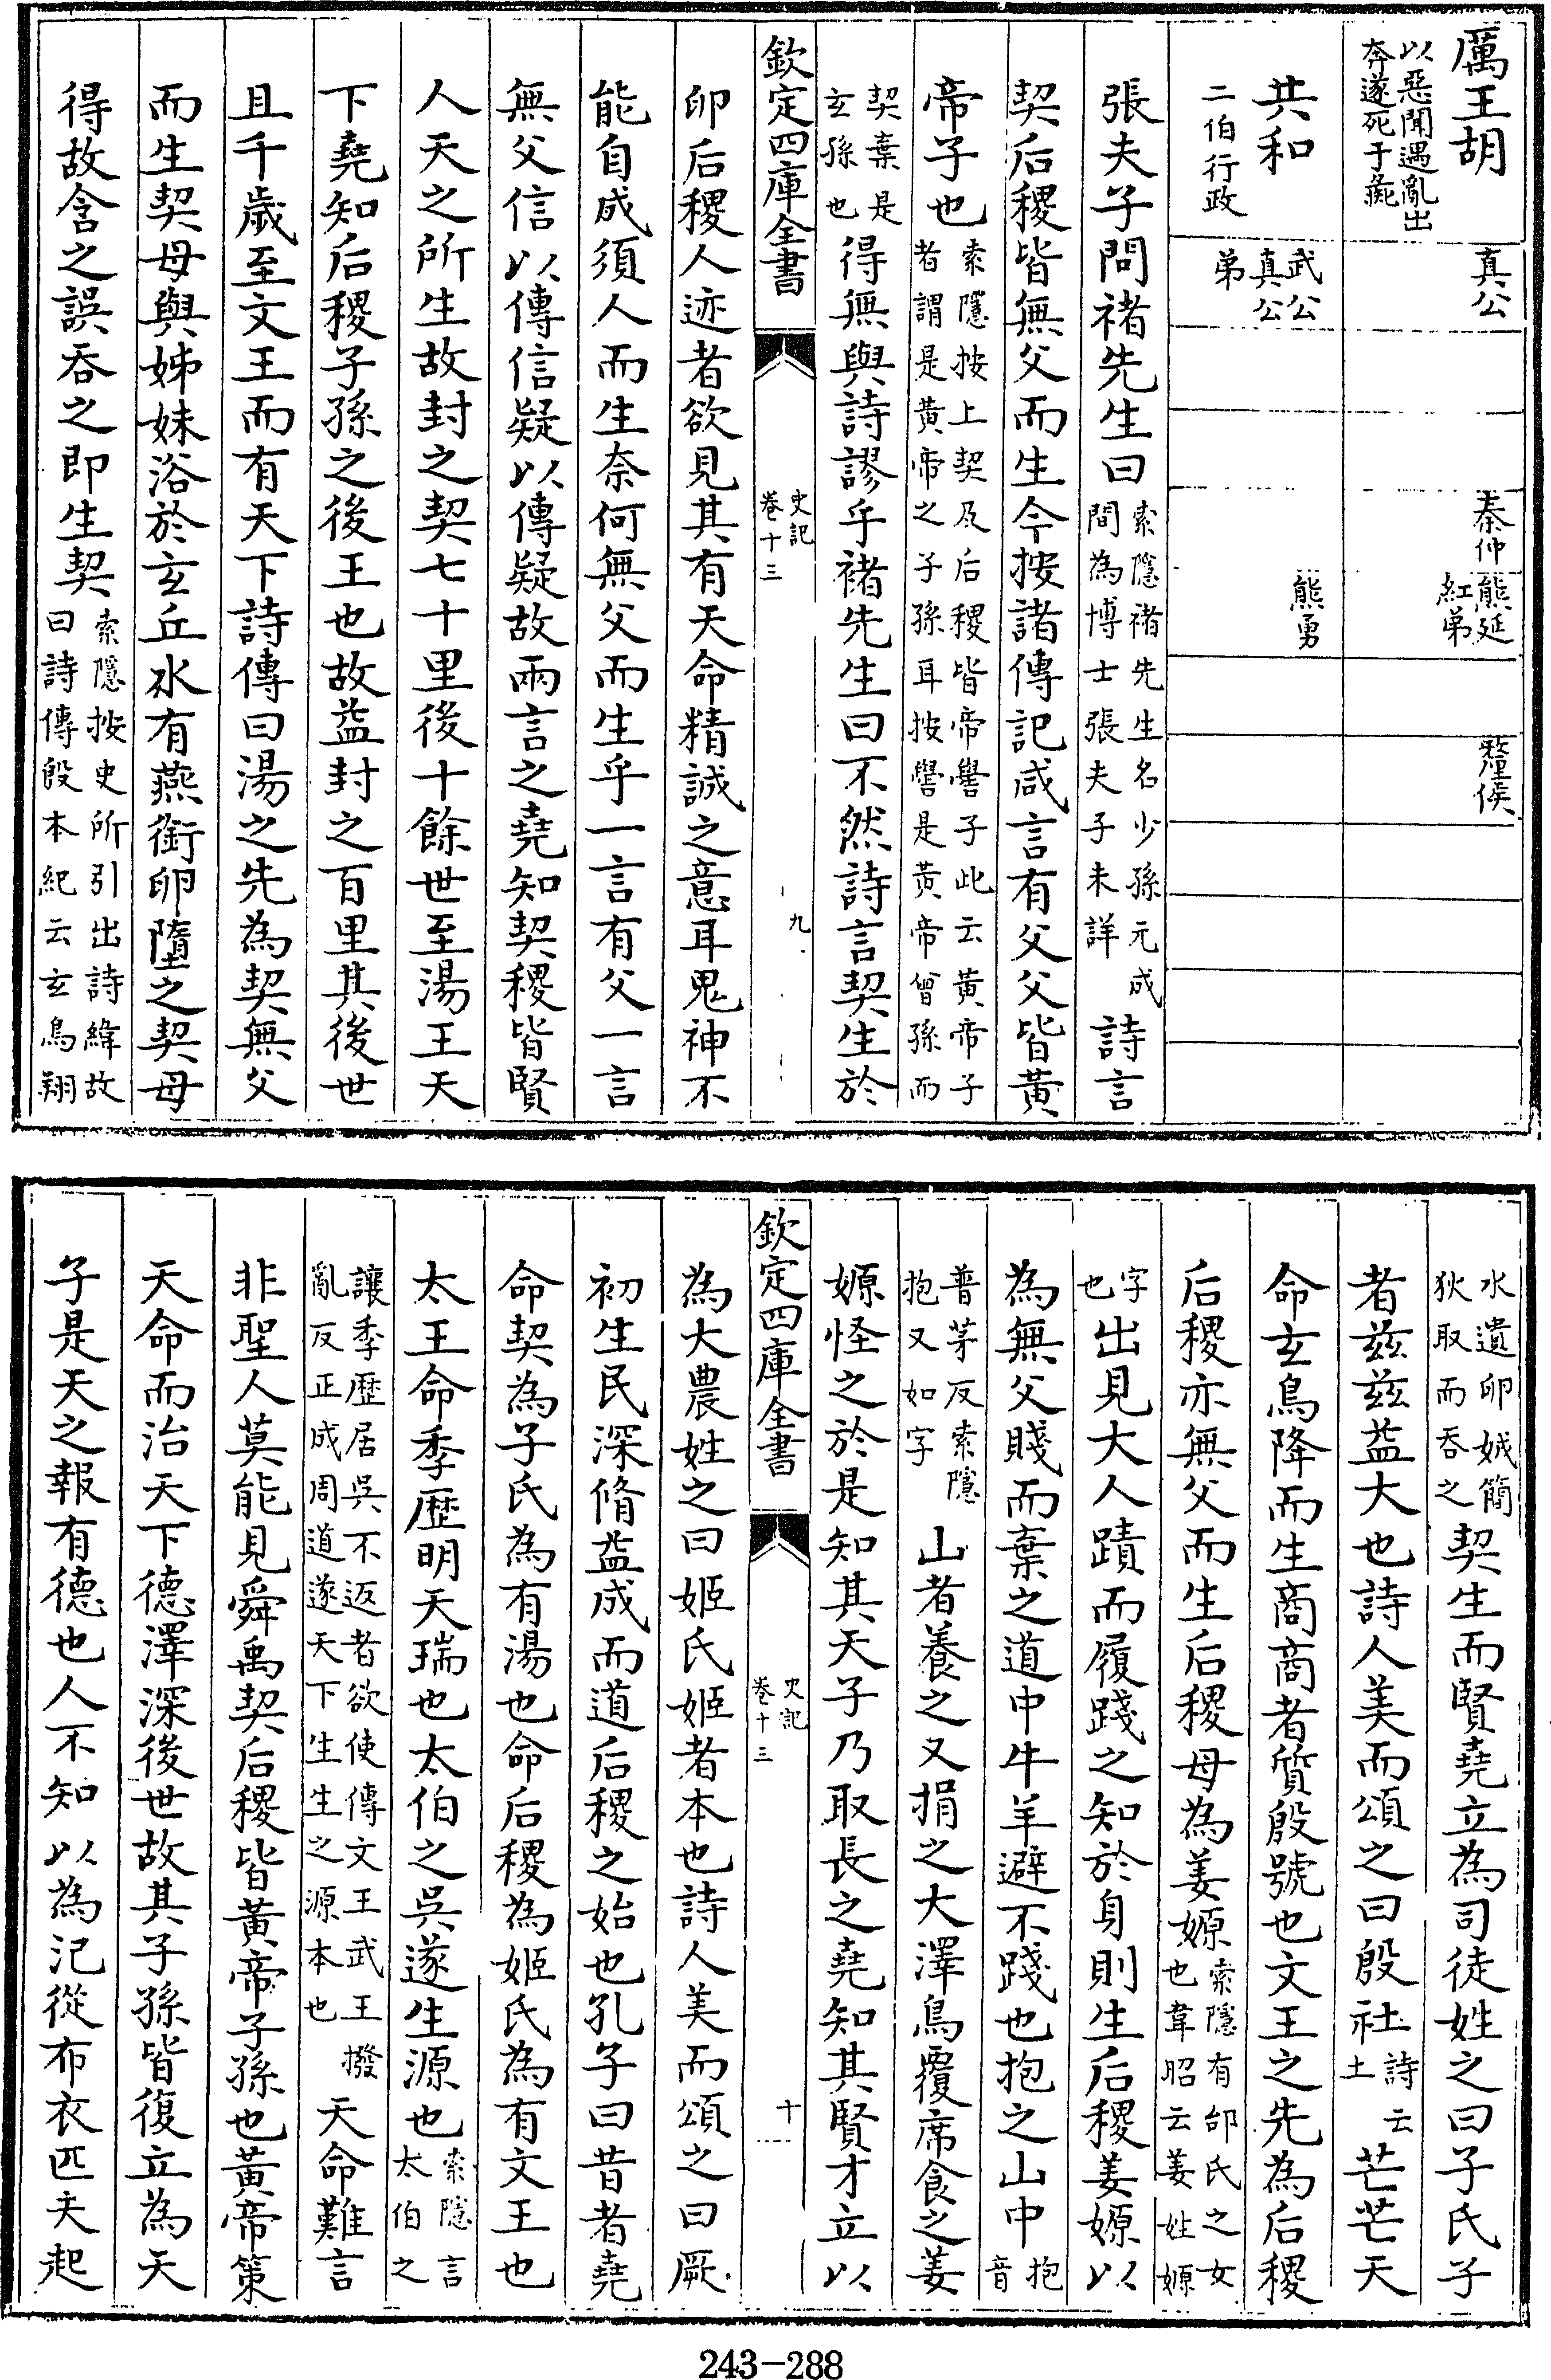 厲王胡以惡聞遇亂出奔遂死于彘 真公 秦仲 熊延紅弟 釐侯
共和二伯行政 武公真公弟 熊勇
張夫子問禇先生曰索隱禇先生名少孫元成間為博士張夫子未詳詩言
契后稷皆無父而生今按諸傳記咸言有父父皆黃
帝子也索隱按上契及后稷皆帝嚳子此云黃帝子者謂是黃帝之子孫耳按嚳是黃帝曾孫而
契棄是玄孫也得無與詩謬乎禇先生曰不然詩言契生於
欽定四庫全書 史記卷十三 九
卵后稷人迹者欲見其有天命精誠之意耳鬼神不
能自成須人而生奈何無父而生乎一言有父一言
無父信以傳信疑以傳疑故兩言之堯知契稷皆賢
人天之所生故封之契七十里後十餘世至湯王天
下堯知后稷子孫之後王也故益封之百里其後世
且千歲至文王而有天下詩傳曰湯之先為契無父
而生契母與姊妹浴於玄丘水有燕銜卵墮之契母
得故含之誤吞之即生契索隱按史所引出詩緯故曰詩傳殷本紀云玄鳥翔
水遺卵娀簡狄取而吞之契生而賢堯立為司徒姓之曰子氏子
者茲茲益大也詩人美而頌之曰殷社詩云土芒芒天
命玄鳥降而生商商者質殷號也文王之先為后稷
后稷亦無父而生后稷母為姜嫄索隱有邰氏之女也韋昭云姜姓嫄
字也出見大人蹟而履踐之知於身則生后稷姜嫄以
為無父賤而棄之道中牛羊避不踐也抱之山中抱音
普茅反索隱抱又如字山者養之又捐之大澤鳥覆席食之姜
嫄怪之於是知其天子乃取長之堯知其賢才立以
欽定四庫全書 史記卷十三 十
為大農姓之曰姬氏姬者本也詩人美而頌之曰厥
初生民深脩益成而道后稷之始也孔子曰昔者堯
命契為子氏為有湯也命后稷為姬氏為有文王也
太王命季歷明天瑞也太伯之吳遂生源也索隱言太伯之
讓季歷居吳不返者欲使傳文王武王撥亂反正成周道遂天下生生之源本也天命難言
非聖人莫能見舜禹契后稷皆黃帝子孫也黃帝策
天命而治天下德澤深後世故其子孫皆復立為天
子是天之報有德也人不知以為氾從布衣匹夫起
243-288